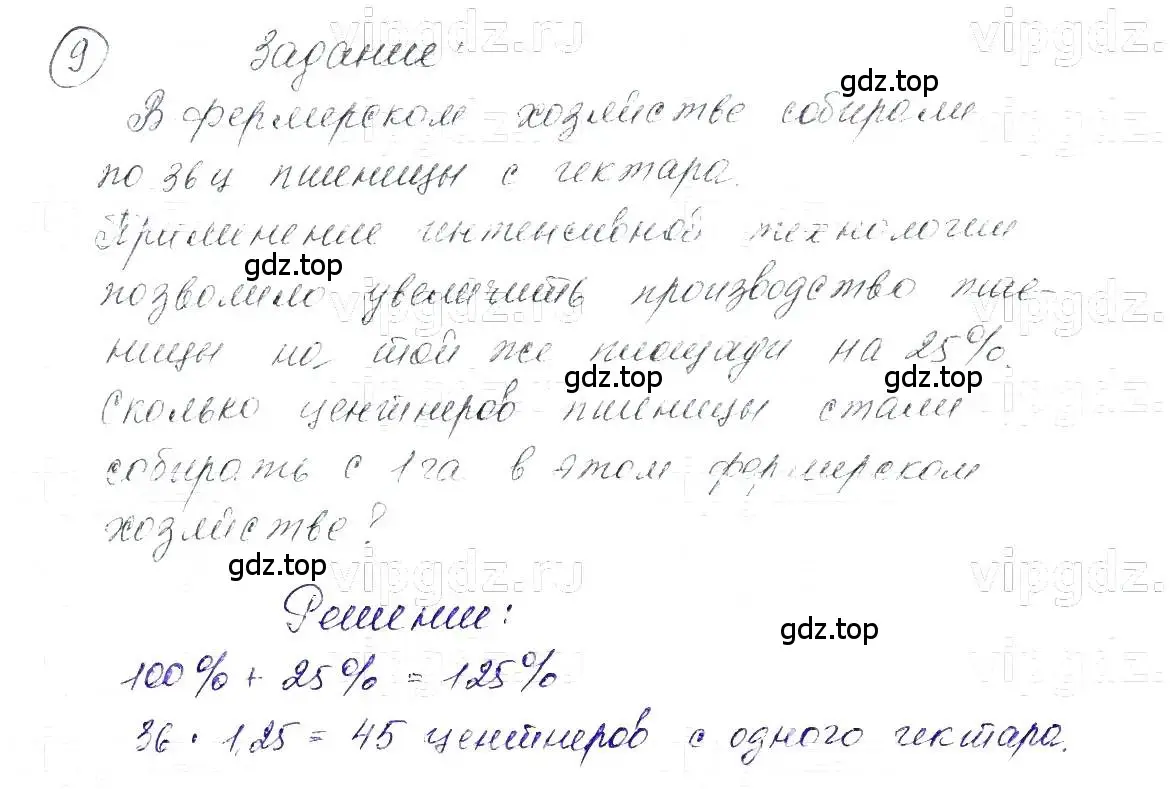 9 Задание:
vipgdz.ru vipgdz.ru
gdz.top gdz.top
В фермерском хозяйстве собирали
по 36 ц пшеницы с гектара.
Применение интенсивной технологии
gdz.top
позволило увеличить производство пше-
ницы на той же площади на 25%.
gdz.top gdz.top
Сколько центнеров пшеницы стали
собирать с 1 га в этом фермерском
хозяйстве?
gdz.top
vipgdz.ru vipgdz.ru
Решение:
gdz.top
100% + 25% = 125%
36 · 1,25 = 45 центнеров с одного гектара.